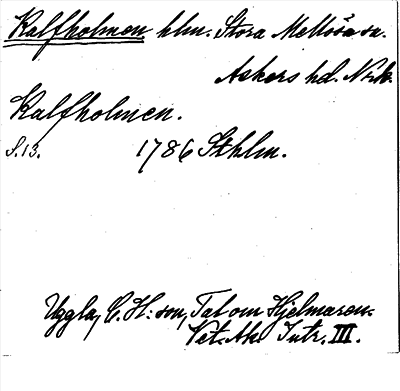 Kalfholmen hlm. Stora Mellösa sn.
Askers hd. Nrk.
Kalfholmen.
S.13. 1786 Sthlm.
Uggla, C. H:son, Tal om Hjelmaren.
Vet. Ak. Intr. III.